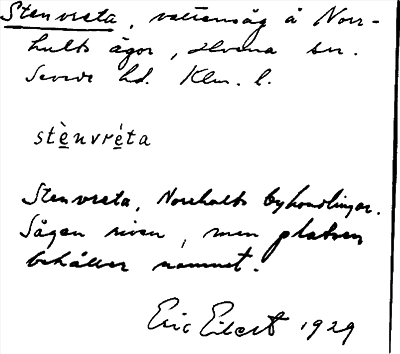 Stenvreta, vattensåg å Norr-
hults ägor, Hvena sn.
Sevede hd. Klm. l.
stènvréta
Stenvreta, Norrhults byhandlingar.
Sågen riven, men platsen
behåller namnet.
Eric Elert 1929